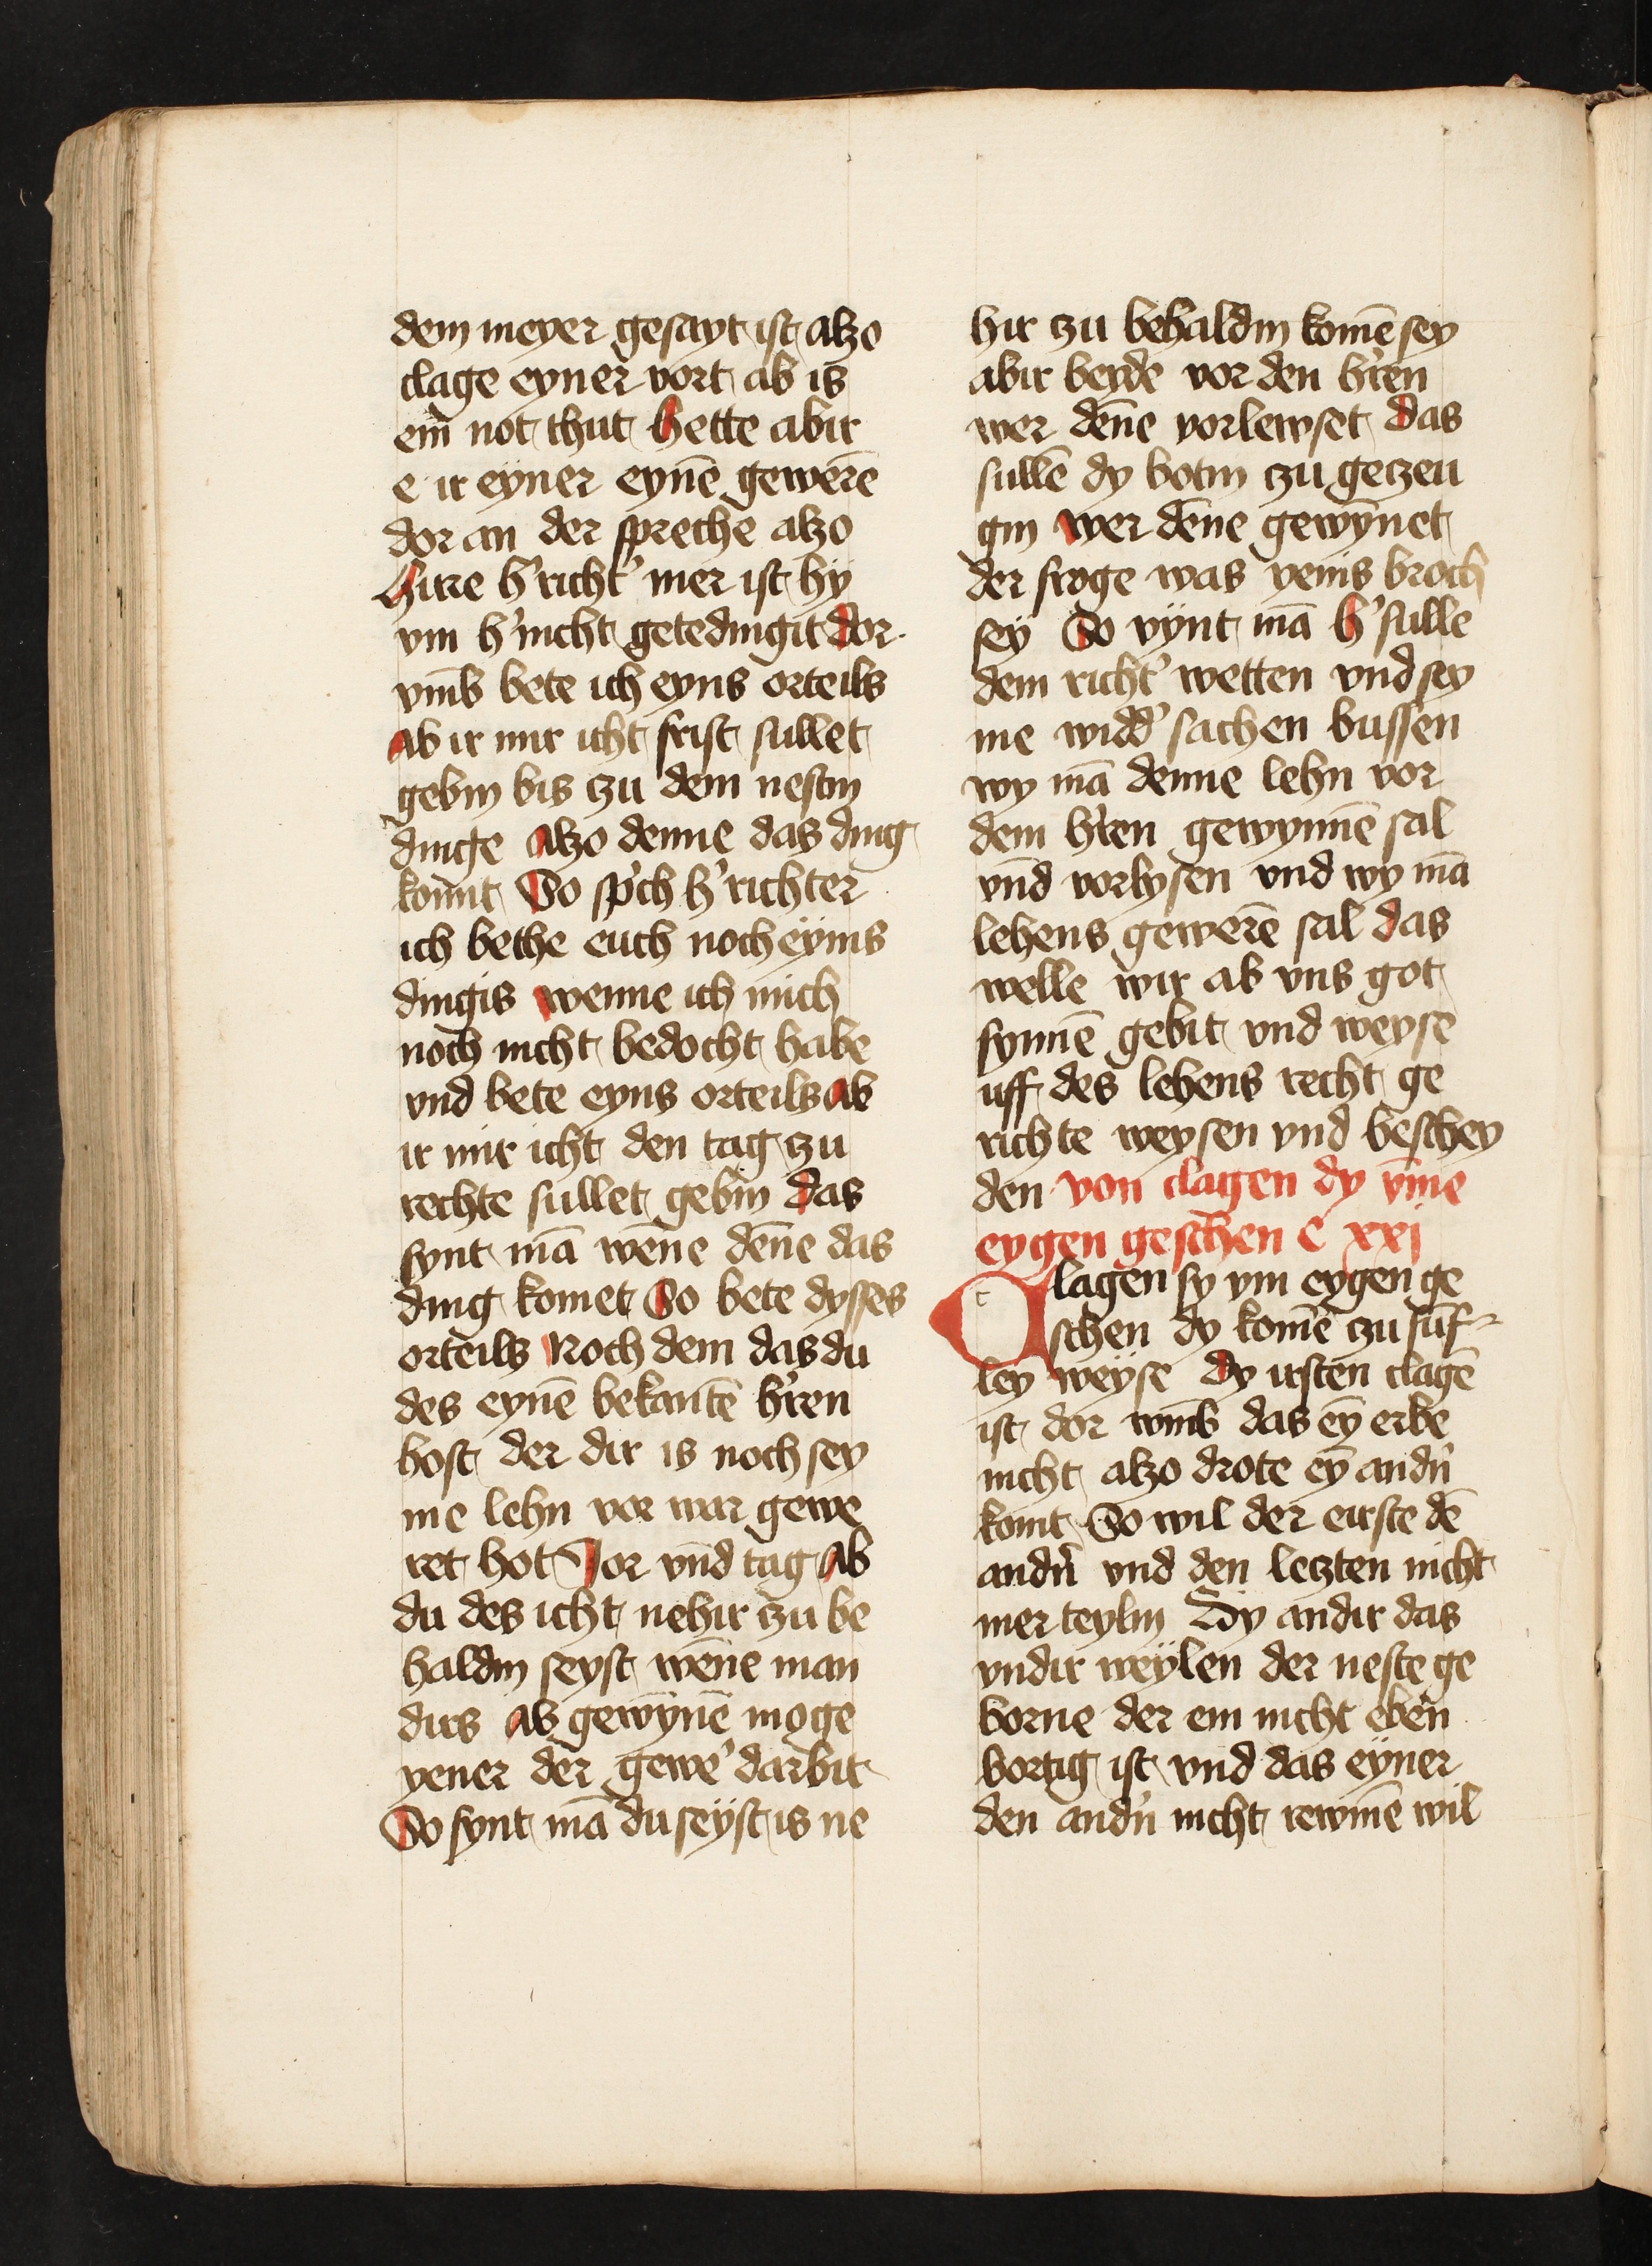 dem meyer gesayt ist alzo
clage eyner vort ab is
em̄ not thut Hette abir
e ir eyner eynē gewerē
dor an der spreche alzo
Hirre h' richt' mer ist hy
vm h' nicht getedingit dor
vm̄b bete ich eyns orteils
Ab ir mir icht frist sullet
gebin bis zu dem nestin
dinge Alzo denne das ding
kom̄t So sp'ch h' richter
ich bethe euch noch eynis
dingis wenne ich mich
noch nicht bedocht habe
vnd bete eyns orteils Ab
ir mir icht den tag zu
rechte sullet gebin das
fynt mā wēne dēne das
ding komet So bete dysses
orteils Noch dem das du
des eynē bekantē h'ren
host der dir is noch sey
me lehn vor war gewe
ret hot Jor vn̄d tag Ab
du des icht nehir zu be
haldin seyst wēne man
dirs Ab gewȳnē moge
yener der gewe' darbit
So fynt mā du seyst is ne
hir zu behaldin komē sey
abir beyde vor den h'ren
wer dēne vorlewset das
sullē dy botin zu geczeu
gin wer dēne gewȳnet
der froge was yenis broch
sey So vynt mā h' sulle
dem richt' wetten vnd sey
me widd' sachen bussen
wy mā denne lehn vor
dem h'ren gewynnē sal
vn̄d vorlysen vnd wy mā
lehens gewerē sal das
welle wir ab vns got
synnē gebit vnd weyse
uff des lehens recht ge
richte weysen vnd beschey
den von clagen dy vm̄e
eygen geschen C xxj
Clagen sy vm eygen ge
schen dy komē zu fu̅f
ley weyse Dy irsten clagē
ist dor wm̄b das eȳ erbe
nicht alzo drote eȳ andn̄
komt So wil der eirste dē
andn̄ vnd den leczten nicht
mer teylin Dy andir das
vndir weylen der neste ge
borne der em nicht ebēn
bortig ist vnd das eyner
den andn̄ nicht rewmē wil